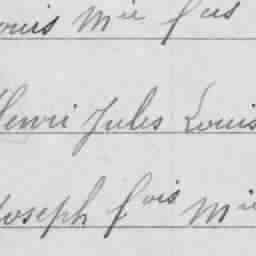 ouis Mie fcis
Henri Jules Louis
Joseph fois Mie